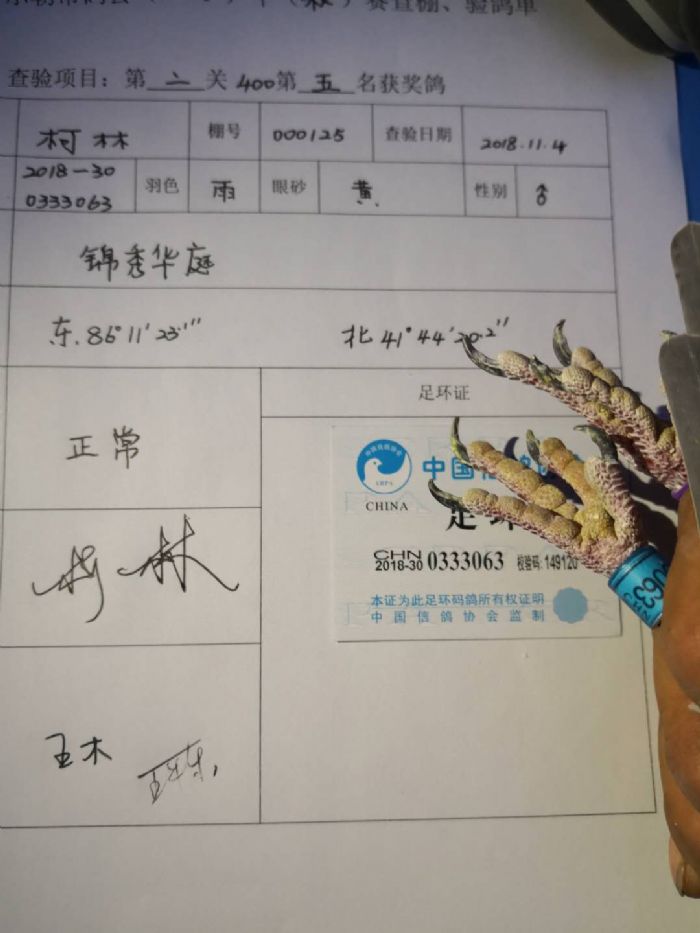 赛查棚、验鸽单
查验项目：第 二 关 400第 五 名获奖鸽
柯林 棚号 000125 查验日期 2018.11.4
2018-30
0333063 羽色 雨 眼砂 黄 性别 ♂
锦秀华庭
东.86°11′23.1″ 北41°44′20.2″
足环证
正常
中国信鸽协
CHINA
足环
CHN
2018-30 0333063 校验码: 149120
本证为此足环码鸽所有权证明
中国信鸽协会监制
柯林
王木